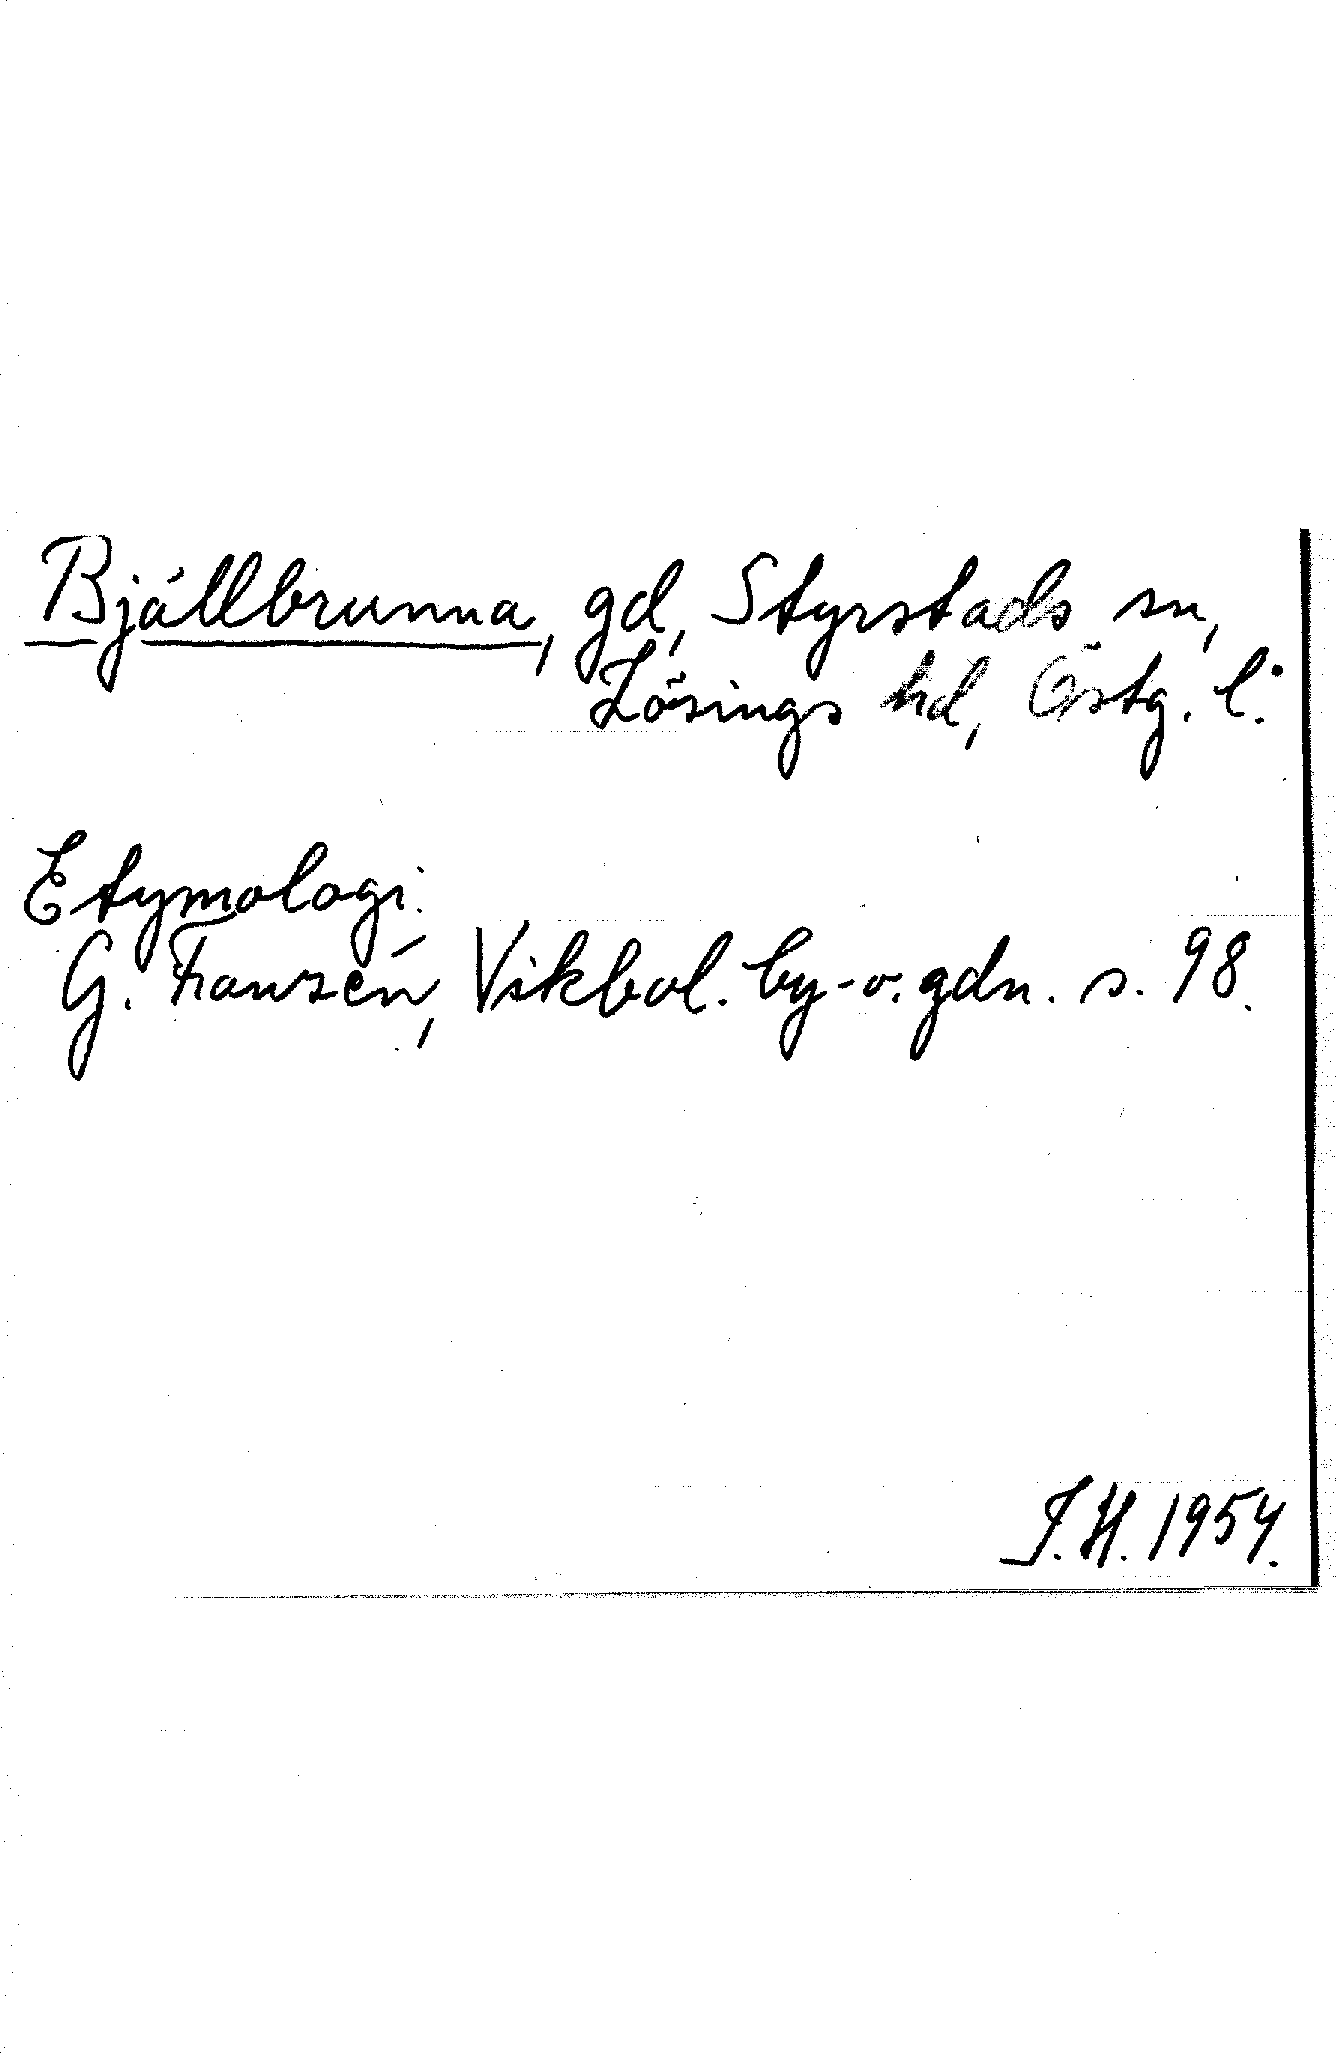 Bjällbrunna, gd, Styrstads sn,
Lösings hd, Östg. l.
Etymologi.
G. Franzén, Vikbol. by- o. gdn. s. 98.
I.H. 1954.